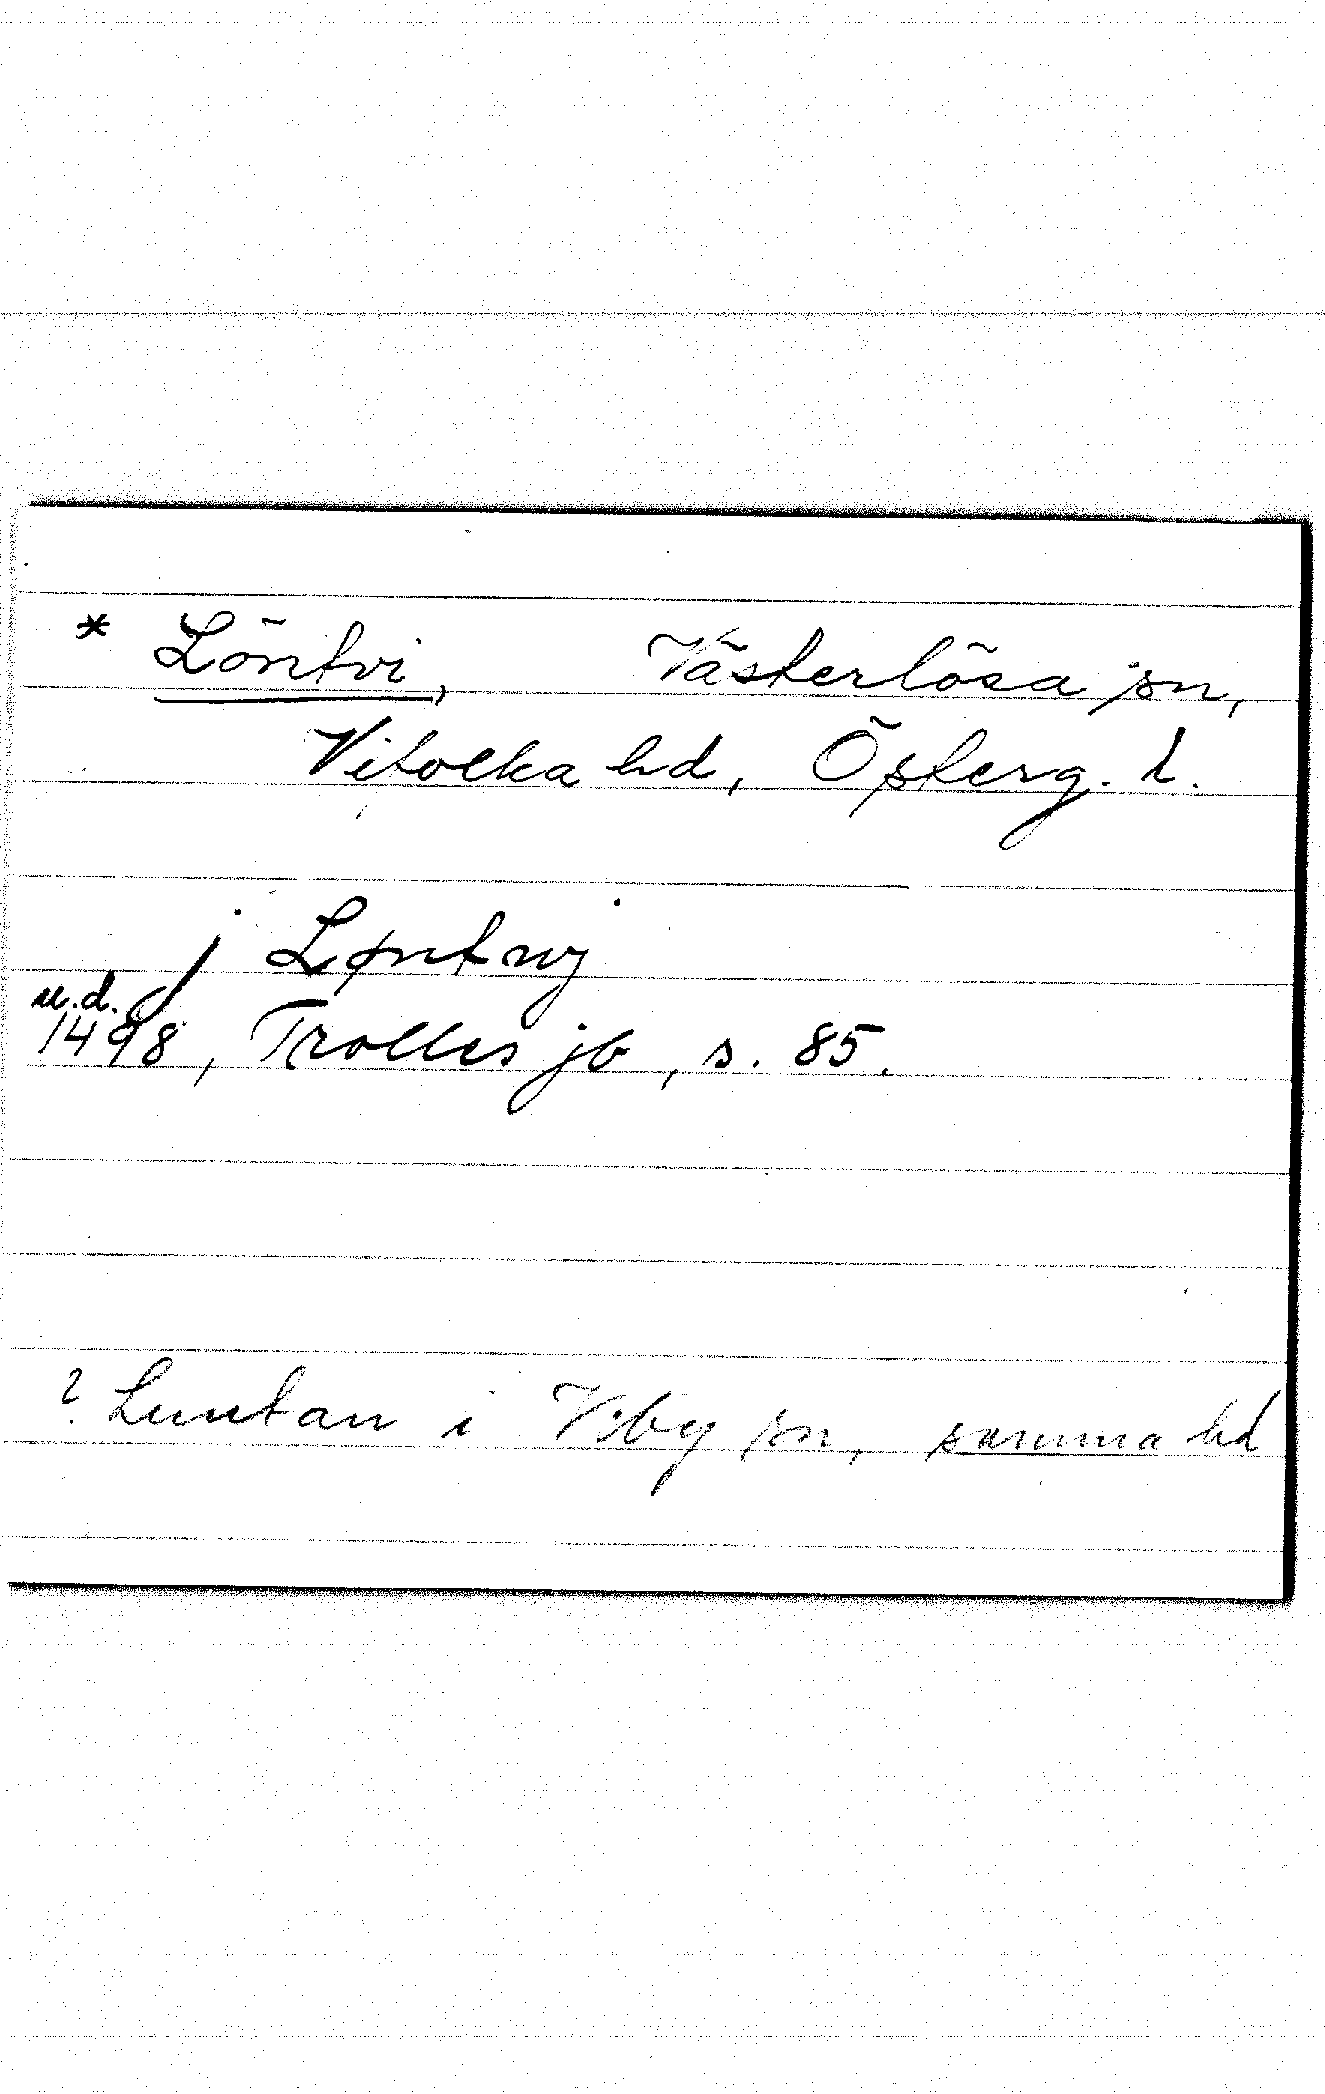 * Löntvi, Västerlösa sn,
Vifolka hd, Österg. l.
j Løntwj
u.d.
1498, Trolles jb, s. 85.
? Luntan i Viby sn, samma hd